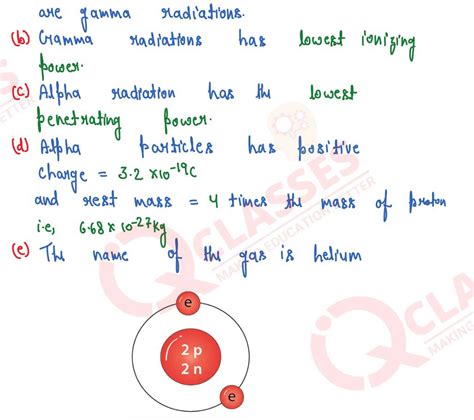 are gamma radiations.
(b) Gamma radiations has lowest ionizing
power.
(c) Alpha radiation has the lowest
penetrating power.
(d) Alpha particles has positive
Charge = 3.2 × 10⁻¹⁹C
and rest mass = 4 times the mass of proton
i.e, 6.68 × 10⁻²⁷kg
(e) The name of the gas is helium
e
2 p
2 n
e
IQ CLASSES
MAKING EDUCATION BETTER
IQ CLA
MAKING